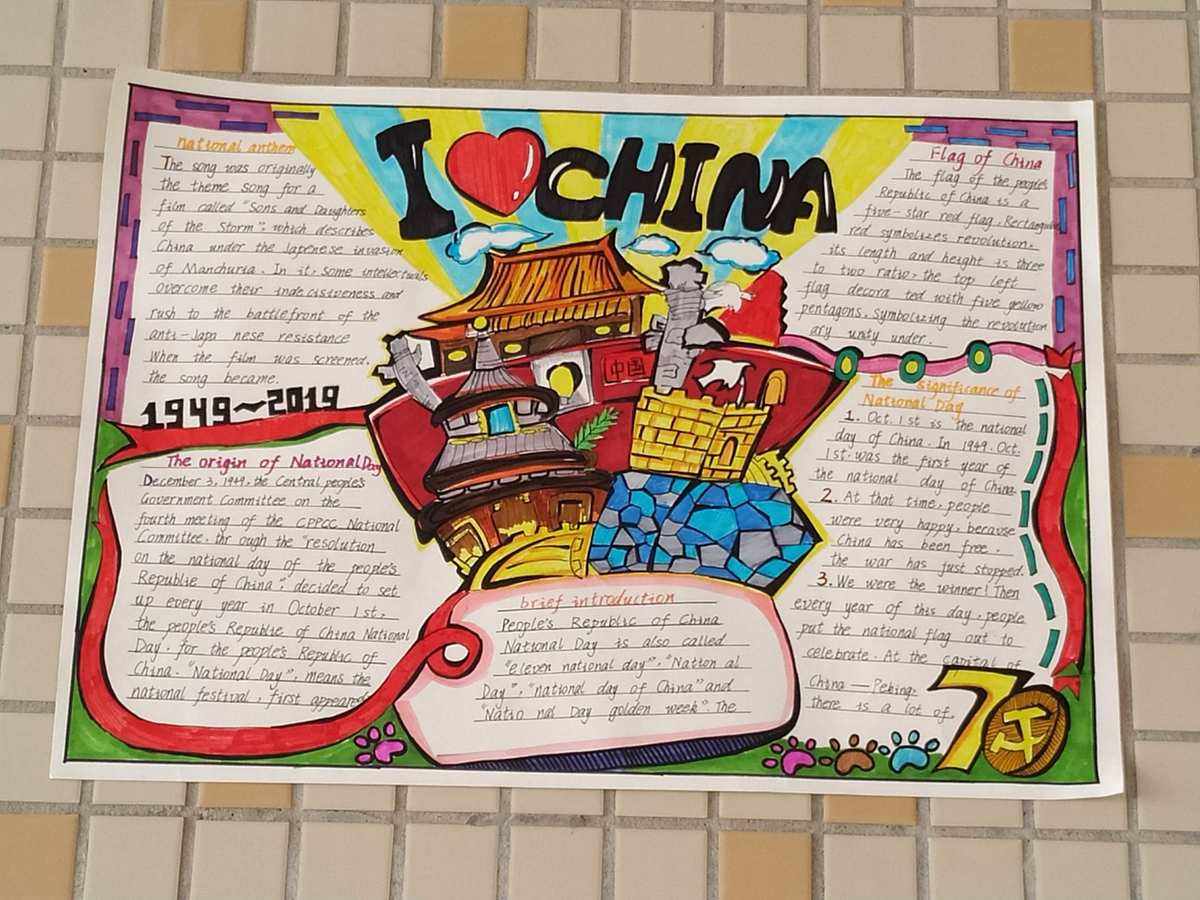 I CHINA
national anthem
The song was originally
the theme song for a
film called "Sons and Daughters
of the Storm", which describes
China under the Japenese invasion
of Manchuria. In it, some intellectuals
overcome their indecisiveness and
rush to the battlefront of the
anti-Japa nese resistance
When the film was screened,
the song became.
1949~2019
The origin of National Day
December 3, 1949, the Central people's
Government Committee on the
fourth meeting of the CPPCC National
Committee, thr ough the "resolution
on the national day of the people's
Republic of China", decided to set
up every year in October 1st,
the people's Republic of China National
Day, for the people's Republic of
China. "National Day", means the
national festival, first appeared
中国
brief introduction
People's Republic of China
National Day is also called
"eleven national day", "Nation al
Day", "national day of China" and
"Natio nal Day golden week". The
Flag of China
The flag of the people's
Republic of China is a
five-star red flag, Rectangular
red symbolizes revolution.
its length and height is three
to two ratio, the top left
flag decora ted with five yellow
pentagons, symbolizing the revolution
ary unity under.
The significance of
National Day
1. Oct. 1st is the national
day of China. In 1949. Oct.
1st was the first year of
the national day of China.
2. At that time, people
were very happy, because
China has been free.
the war has just stopped.
3. We were the winner! Then
every year of this day, people
put the national flag out to
celebrate. At the capital of
China — Peking,
there is a lot of.
70